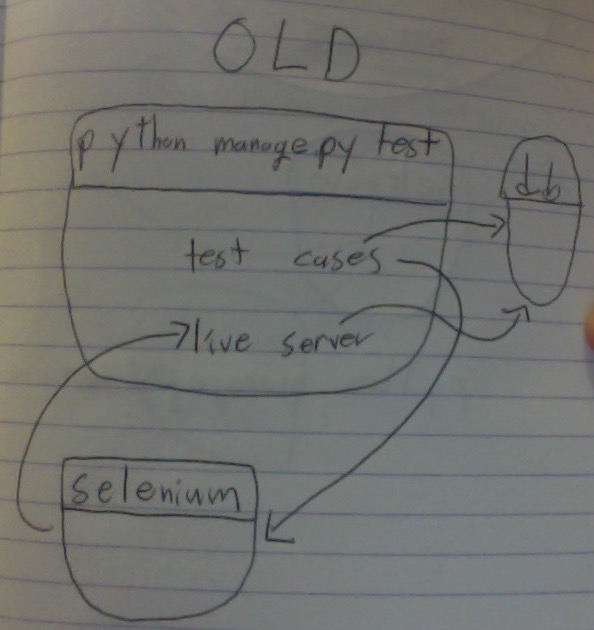 OLD
python manage.py test
db
test cases
live server
selenium